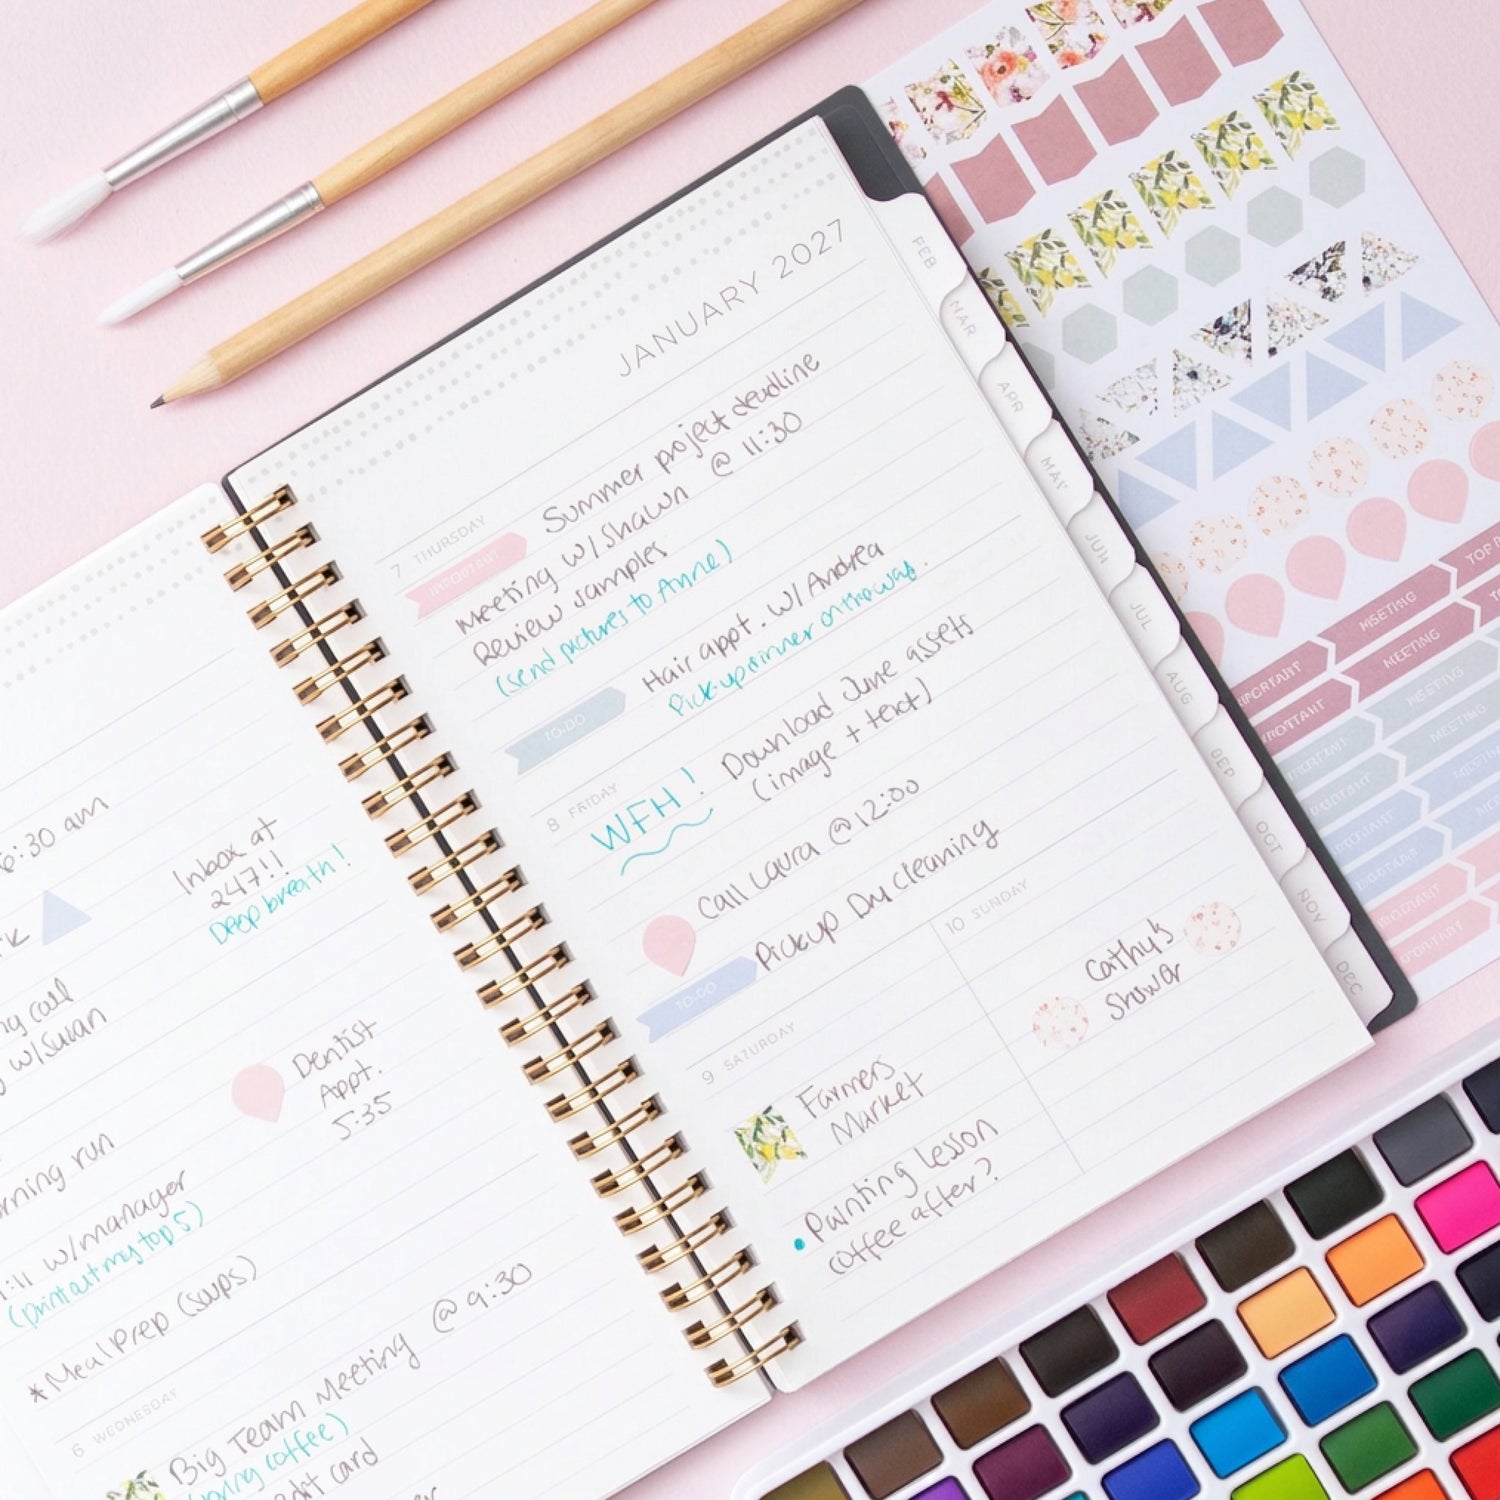 6:30 am
Inbox at
247!!
Deep breath!
call
w/Susan
Dentist
Appt.
5:35
morning run
w/manager
(print out my top 5)
*Meal Prep (soups)
6 WEDNESDAY
Big Team Meeting @ 9:30
(bring coffee)
card
JANUARY 2027
7 THURSDAY
IMPORTANT
Summer project deadline
Meeting w/Shawn @ 11:30
Review samples
(send pictures to Anne)
TO-DO
Hair appt. w/ Andrea
Pick-up dinner on the way.
8 FRIDAY
WFH!
Download June assets
(image + text)
Call Laura @ 12:00
TO-DO
Pickup Dry cleaning
9 SATURDAY
Farmers
Market
• Painting Lesson
coffee after?
10 SUNDAY
Cathy's
Shower
FEB
MAR
APR
MAY
JUN
JUL
AUG
SEP
OCT
NOV
DEC
MEETING
IMPORTANT
MEETING
IMPORTANT
MEETING
IMPORTANT
MEETING
IMPORTANT
MEETING
IMPORTANT
IMPORTANT
IMPORTANT
IMPORTANT